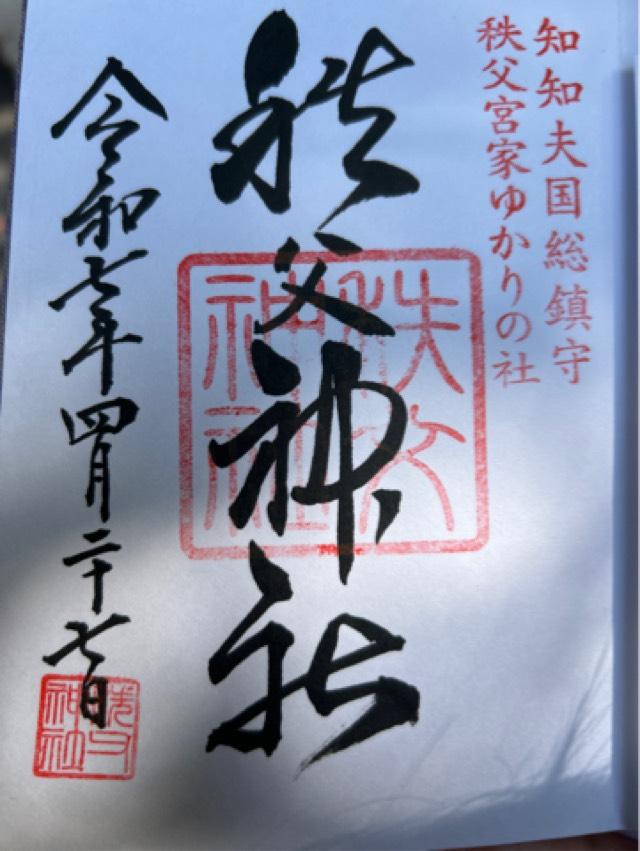 知知夫国総鎮守
秩父宮家ゆかりの社
秩父神社
秩父神社
令和七年四月二十七日
秩父神社